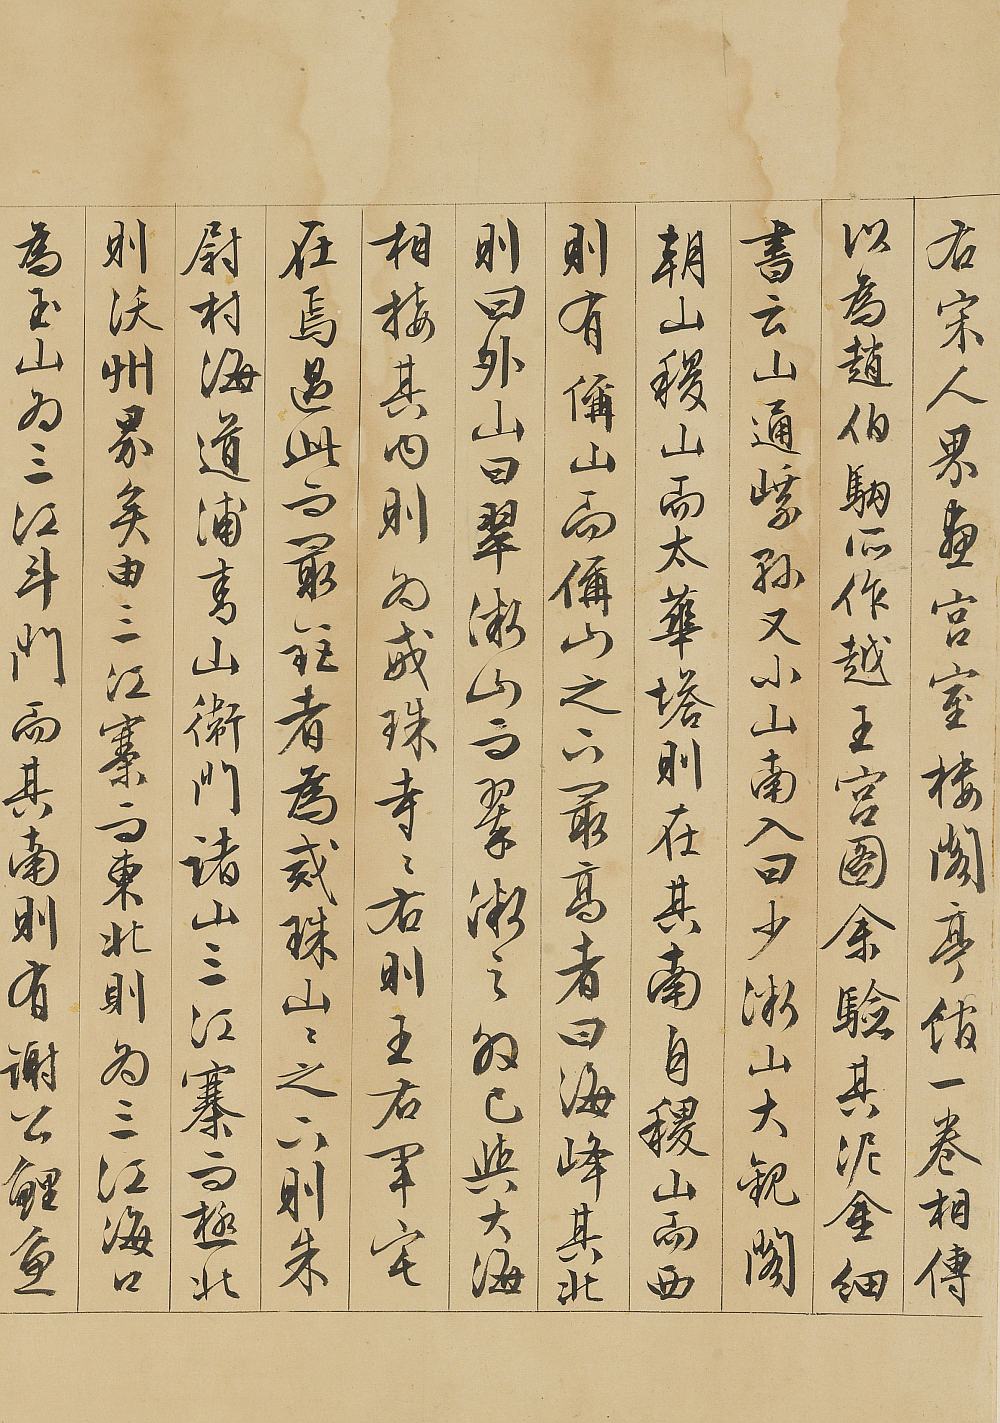 右宋人界畫宮室樓閣亭館一卷相傳
以為趙伯駒所作越王宮圖余驗其泥金細
書云山通嶀孫又小山南入曰少微山大觀閣
朝山稷山而太華塔則在其南自稷山而西
則有偁山而偁山之下最高者曰海峰其北
則曰外山曰翠微山而翠微之外已與大海
相接其内則為戒珠寺〻右則王右軍宅
在焉過此而最近者為戒珠山〻之下則朱
尉村海道浦青山衛門諸山三江寨而極北
則沃州界矣由三江寨而東北則為三江海口
為玉山為三江斗門而其南則有謝公鯉魚